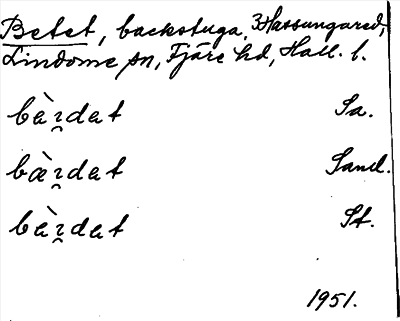 Betet, backstuga, 3 Hassungared,
Lindome sn, Fjäre hd, Hall. l.
bè̱ɪdet Sa.
bæ̀ɪdet Sand.
bèɪdet St.
1951.